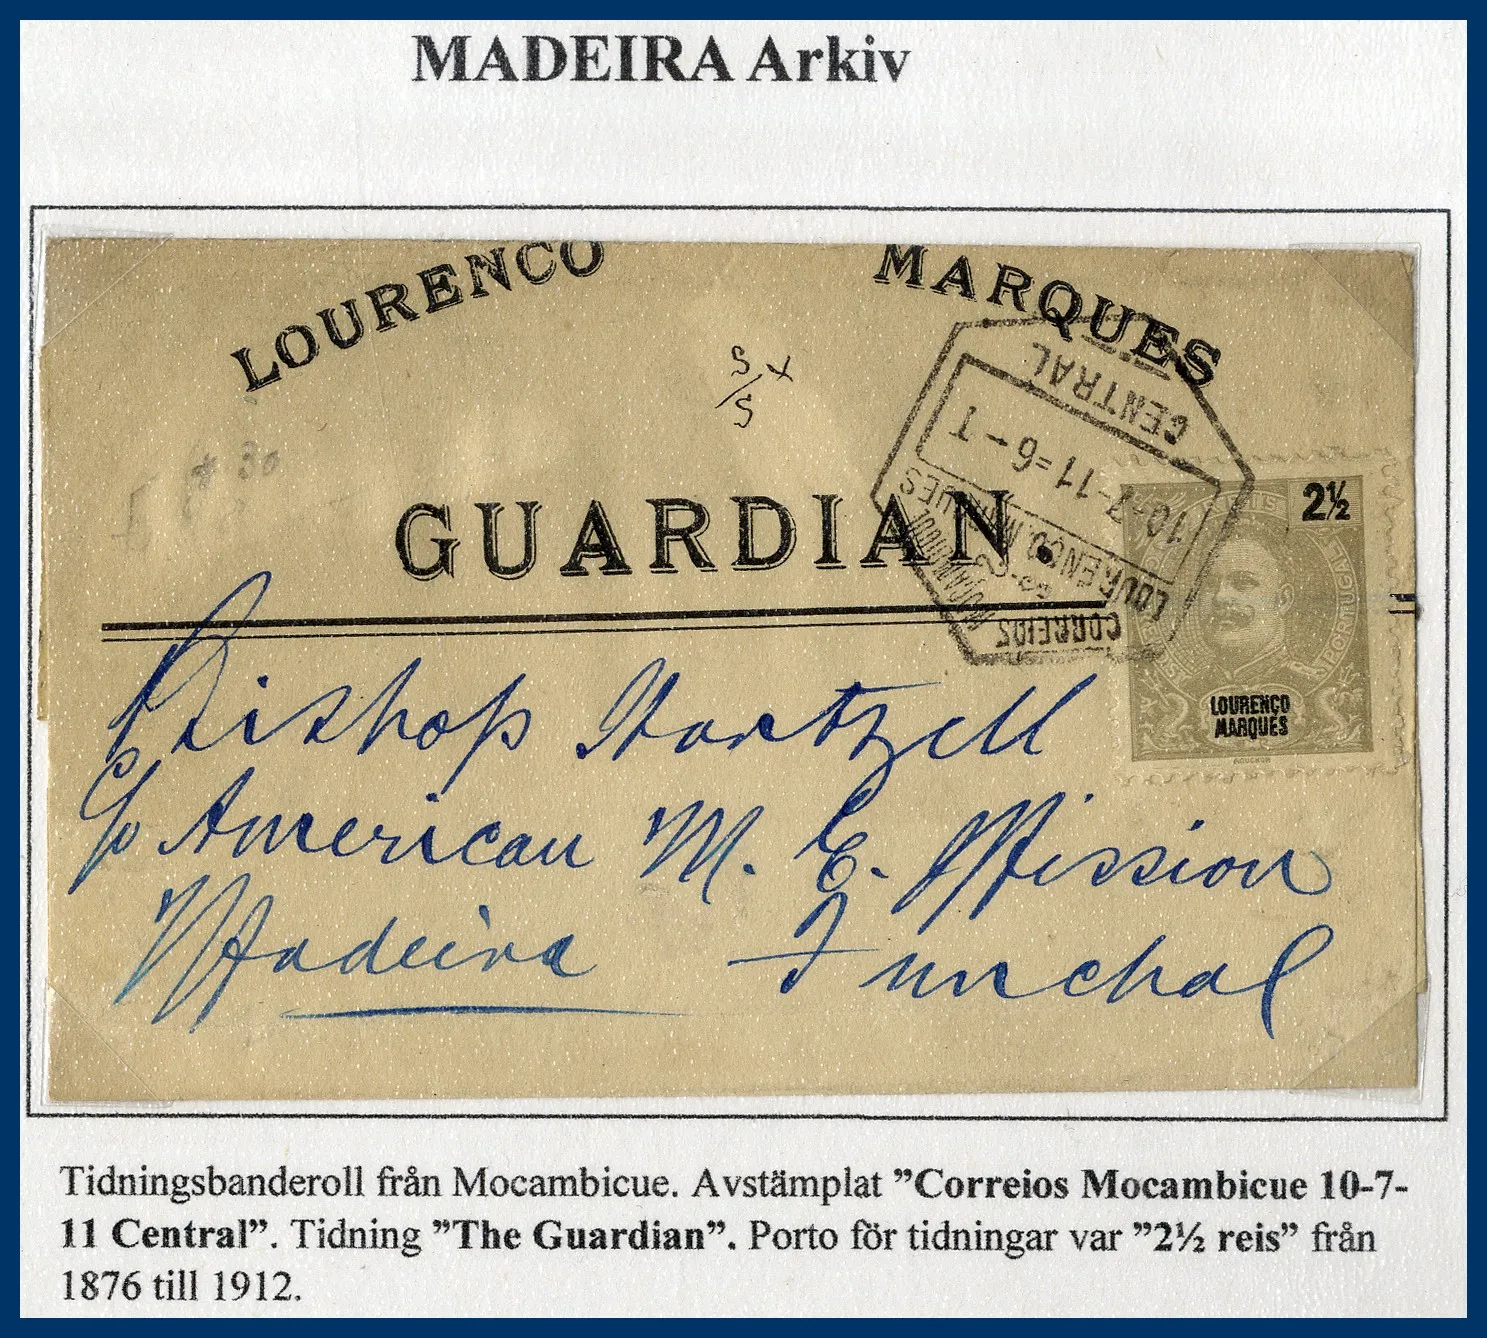 MADEIRA Arkiv
LOURENCO MARQUES
S/S x
* 30
GUARDIAN.
CENTRAL
10-7-11=6-T
LOURENCO. MARQUES
MOCAMBIQUE
CORREIOS
2½
PORTUGAL
LOURENÇO
MARQUES
Bishop Hartzell
c/o American M. E. Mission
Madeira Funchal
Tidningsbanderoll från Mocambicue. Avstämplat ”Correios Mocambicue 10-7-
11 Central”. Tidning ”The Guardian”. Porto för tidningar var ”2½ reis” från
1876 till 1912.